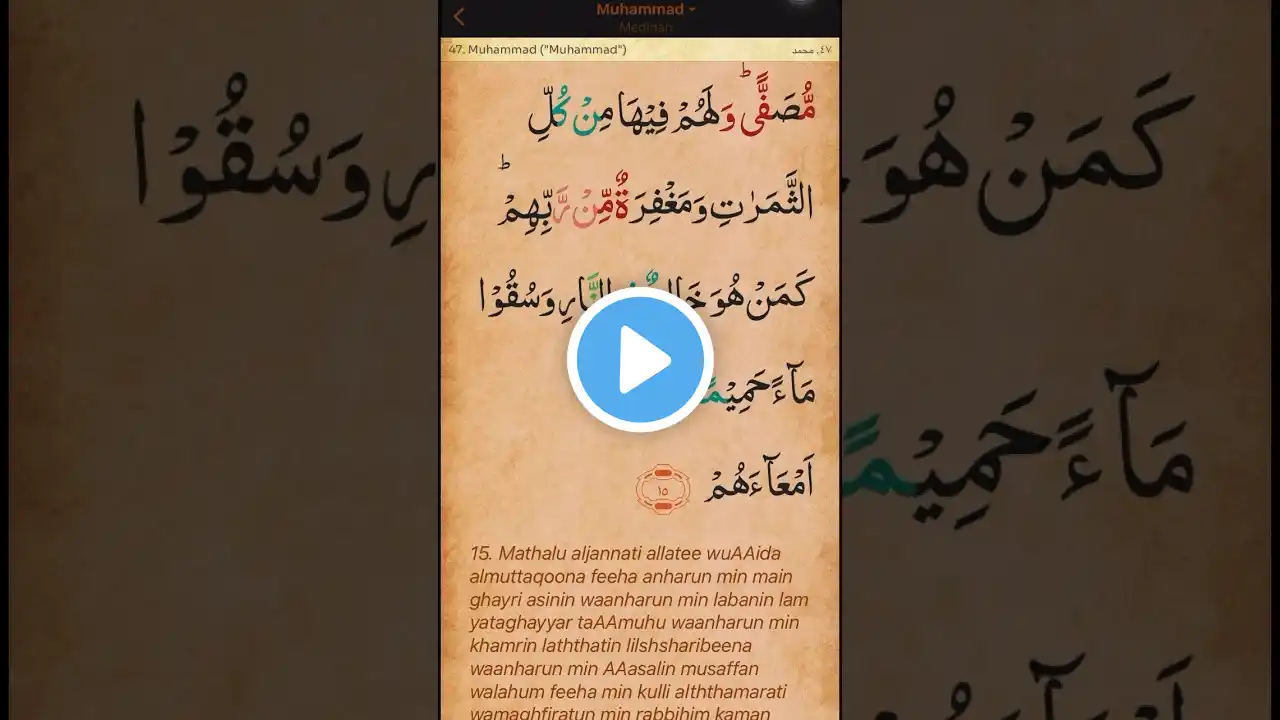 Muhammad
Medinan
47. Muhammad ("Muhammad")
٤٧. محمد
مُّصَفًّىؕ وَلَهُمۡ فِيۡهَا مِنۡ كُلِّ
الثَّمَرٰتِ وَمَغۡفِرَةٌ مِّنۡ رَّبِّهِمۡؕ
كَمَنۡ هُوَ النَّارِ وَسُقُوۡا
مَآءً حَمِيۡمًا
اَمۡعَآءَهُمۡ ١٥
15. Mathalu aljannati allatee wuAAida
almuttaqoona feeha anharun min main
ghayri asinin waanharun min labanin lam
yataghayyar taAAmuhu waanharun min
khamrin laththatin lilshsharibeena
waanharun min AAasalin musaffan
walahum feeha min kulli alththamarati
wamaghfiratun min rabbihim kaman